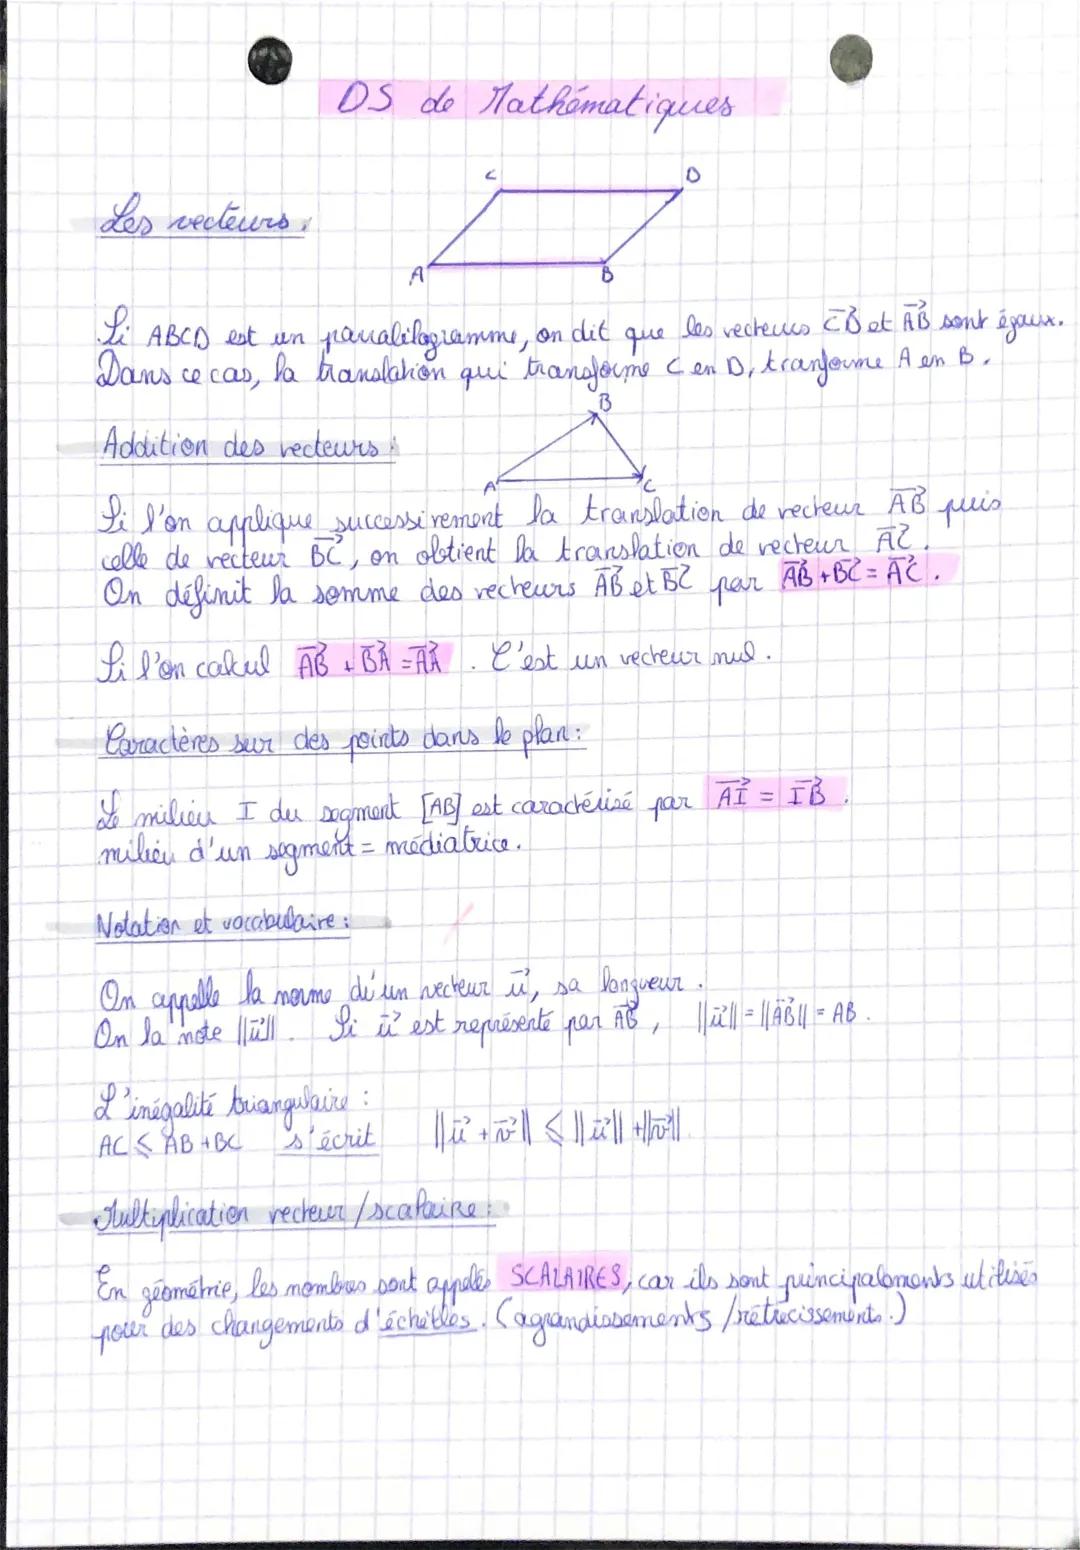 DS de Mathématiques
C D
Les vecteurs :
A B
Si ABCD est un paralélogramme, on dit que les vecteurs $\overrightarrow{CD}$ et $\overrightarrow{AB}$ sont égaux.
Dans ce cas, la translation qui transforme C en D, tranforme A en B.
B
Addition des vecteurs :
A C
Si l'on applique successivement la translation de vecteur $\overrightarrow{AB}$ puis
celle de vecteur $\overrightarrow{BC}$, on obtient la translation de vecteur $\overrightarrow{AC}$.
On définit la somme des vecteurs $\overrightarrow{AB}$ et $\overrightarrow{BC}$ par $\overrightarrow{AB} + \overrightarrow{BC} = \overrightarrow{AC}$.
Si l'on calcul $\overrightarrow{AB} + \overrightarrow{BA} = \overrightarrow{AA}$. C'est un vecteur nul.
Caractères sur des points dans le plan :
Le milieu I du segment [AB] est caractérisé par $\overrightarrow{AI} = \overrightarrow{IB}$.
milieu d'un segment = médiatrice.
Notation et vocabulaire :
On appelle la norme d'un vecteur $\vec{u}$, sa longueur.
On la note $||\vec{u}||$. Si $\vec{u}$ est représenté par $\overrightarrow{AB}$, $||\vec{u}|| = ||\overrightarrow{AB}|| = AB$.
L'inégalité triangulaire :
AC ⩽ AB + BC s'écrit $||\vec{u} + \vec{v}|| ⩽ ||\vec{u}|| + ||\vec{v}||$
Multiplication vecteur / scalaire :
En géométrie, les nombres sont appelés SCALAIRES, car ils sont principalements utilisés
pour des changements d'échelles. (agrandissements / rétrecissements.)